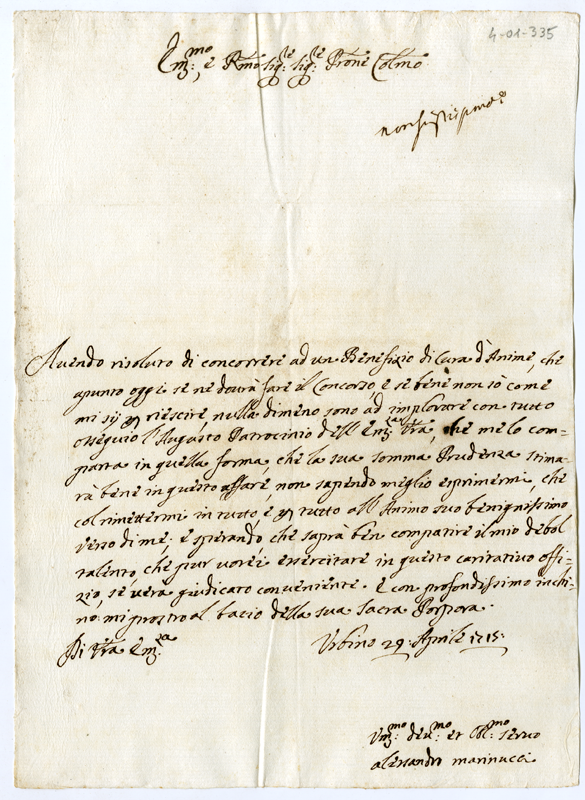 4-01-335
Em:mo, e Rmo Sig:re Sig:re Prone Colmo
non si risponde
Auendo risoluto di concorrere ad un Benefizio di Cura d'Anime, che
apunto oggi se ne dourà fare il Concorso, e se bene non sò come
mi sij p riescire, nulla dimeno sono ad implorare con tutto
ossequio l'Augusto Patrocinio dell' Em:za Vra, che me lo com-
parta in quella forma, che la sua somma Prudenza stima-
rà bene in questo affare, non sapendo meglio esprimermi, che
col rimettermi in tutto, e p tutto all' Animo suo benignissimo
verso di me; e sperando, che saprà ben compatire il mio debol
talento, che pur vorei exercitare in questo caritativo offi-
zio, se verà giudicato conveniente. e con profondissimo inchi-
no mi prostro al bacio della sua Sacra Porpora.
Di Vra Em:za
Urbino 29: Aprile 1715:
Vm:mo deu:mo et Obl:mo servo
alessandro marinucci